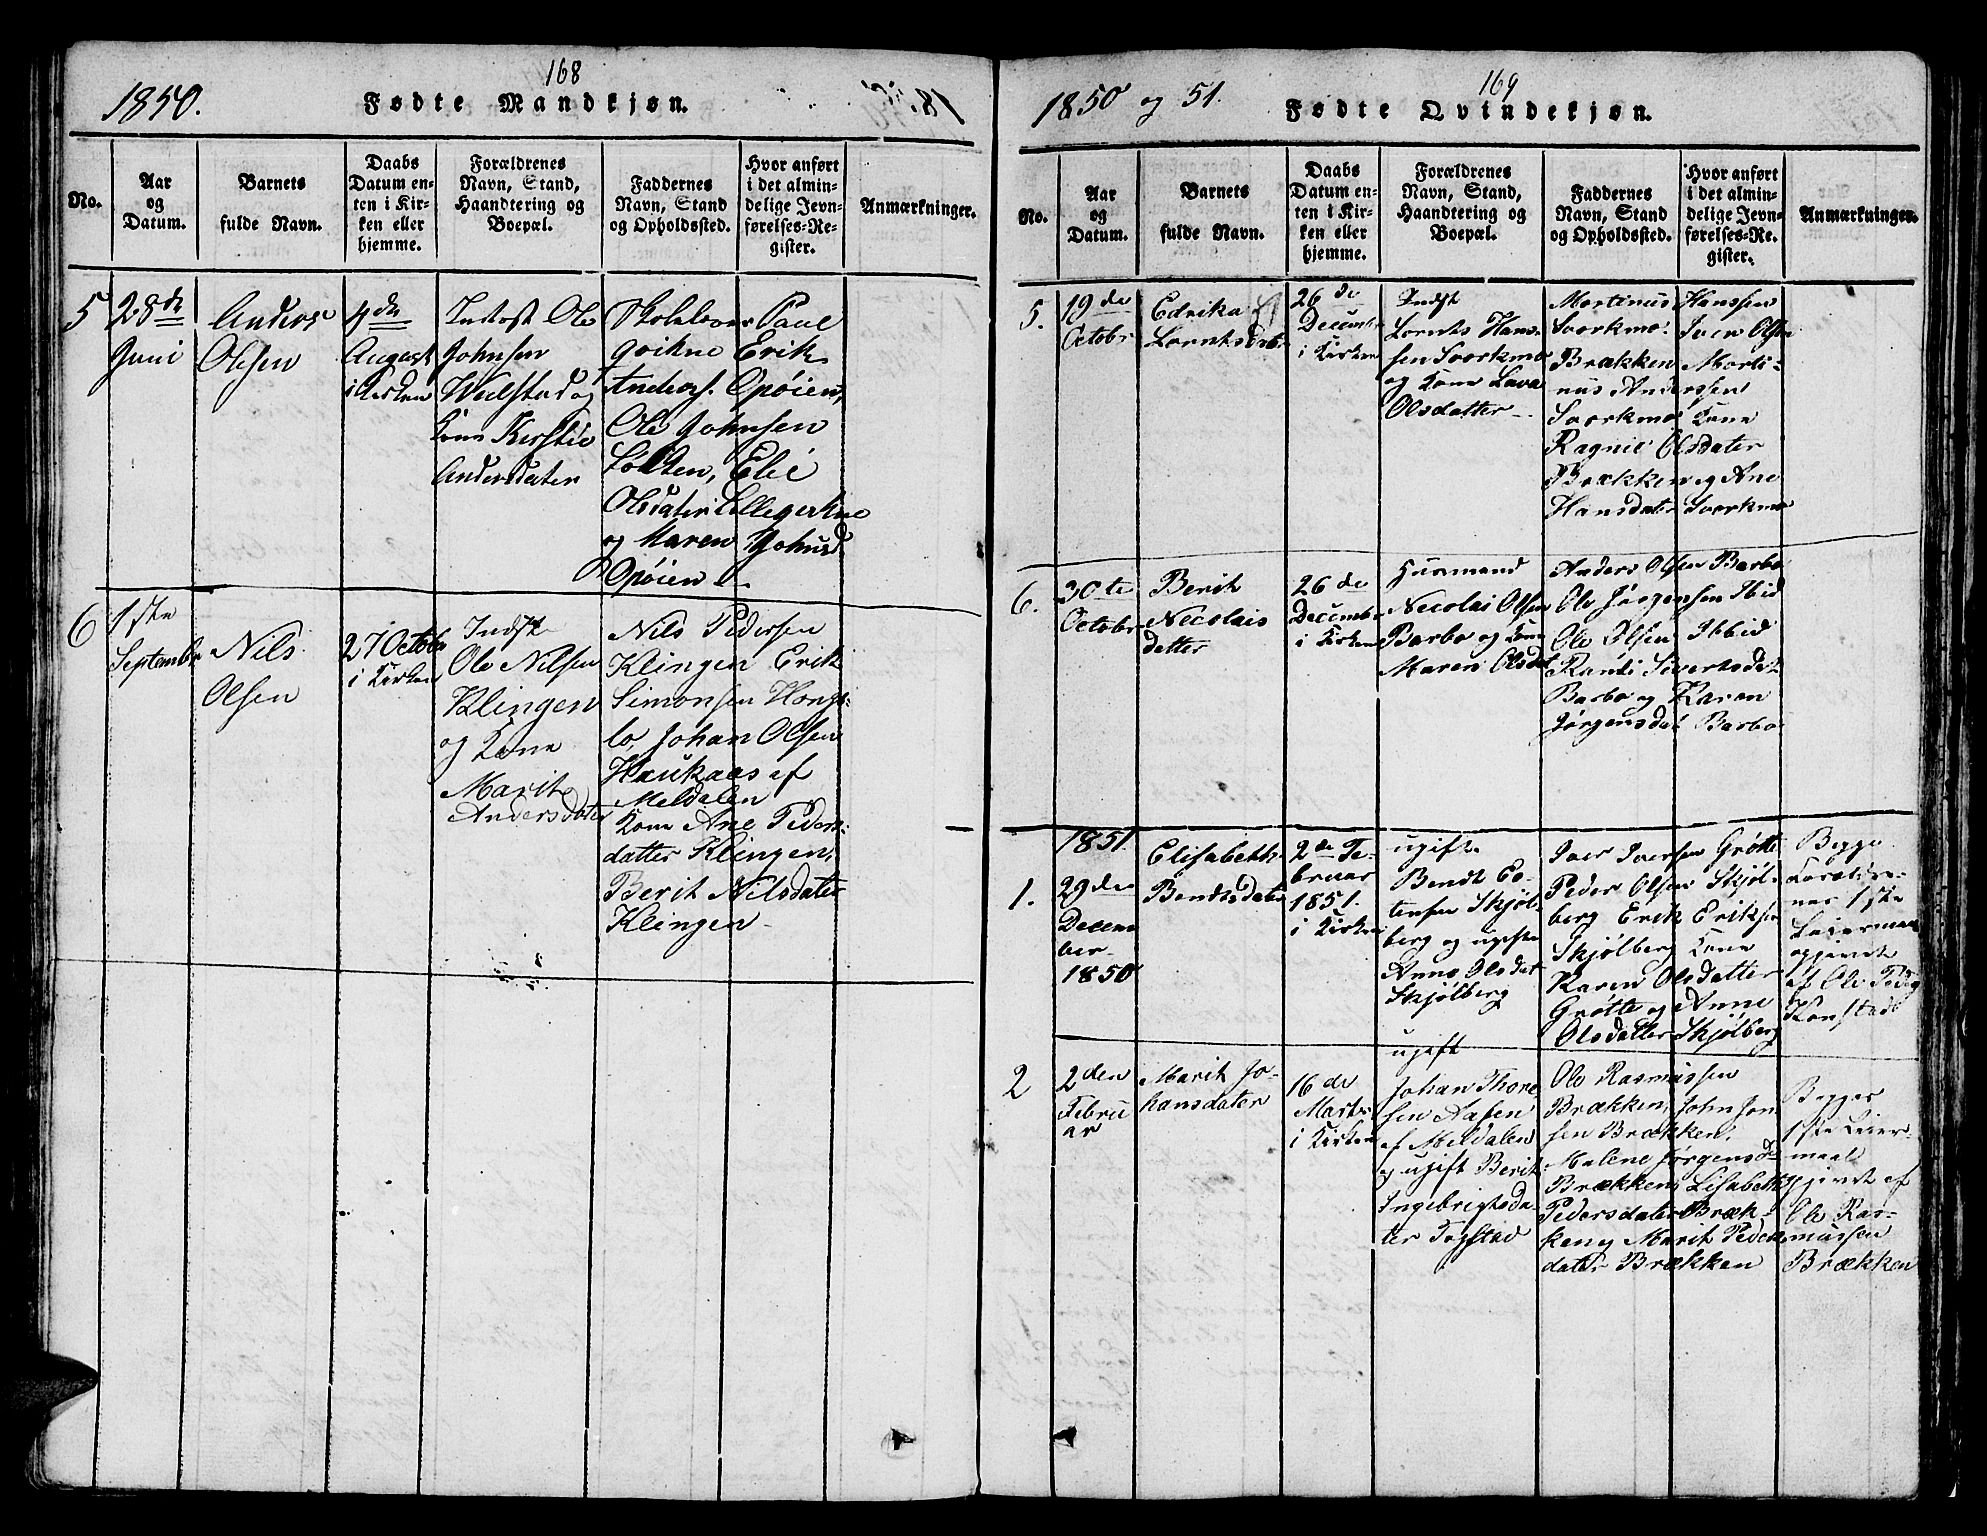 168
1850.
Fødte Mandkjøn.
No.
Aar
og
Datum.
Barnets
fulde Navn.
Daabs
Datum en-
ten i Kir-
ken eller
hjemme.
Forældrenes
Navn, Stand,
Haandtering og
Boepæl.
Faddernes
Navn, Stand
og Opholdssted.
Hvor anført
i det almin-
delige Jevn-
førelses-Re-
gister.
Anmærkninger.
5
28de
Juni
Anders
Olsen
4de
August
i Kirken
Inderst Ole
Johnsen
Walstad og
Kone Kirstie
Andersdater
Skolelærer Paul
Gjeikne Erik
Anders. Opøien,
Ole Johnsen
Løkken, Elie
Olsdater Lillegerkne
og Maren Johnsd
Opøien
6
1ste
Septembr
Nils
Olsen
27 Octobr
i Kirken
Indst
Ole Nilsen
Klingen
og Kone
Marit
Andersdater
Nils Pedersen
Klingen Erik
Simonsen Hongs-
lo, Johan Olsen
Haukaas af
Meldalen
Kone Ane Peders-
datter Klingen,
Berit Nilsdater
Klingen
169
1850 og 51.
Fødte Qvindekjøn.
No.
Aar
og
Datum.
Barnets
fulde Navn.
Daabs
Datum en-
ten i Kir-
ken eller
hjemme.
Forældrenes
Navn, Stand,
Haandtering og
Boepæl.
Faddernes
Navn, Stand
og Opholdssted.
Hvor anført
i det almin-
delige Jevn-
førelses-Re-
gister.
Anmærkninger.
5.
19de
Octobr
Edrika
Lorntsdatr
26de
Decembr
i Kirken
Indst
Lornts Han-
sen Svorkmo
og Kone Lava
Olsdatter
Mortinus Hanssen
Svorkmo. Iver Olsen
Brækken Morti-
nus Anderssen
Svorkmo Kone
Ragnie Olsdater
Brækken og Ane
Hansdater Svorkmo
6.
30te
Octobr
Berit
Necolais
datter
26de
Decembr
i Kirken
Huusmand
Necolai Olsen
Barbo og Kone
Maren Olsdat
Anders Olsen Barbo
Ole Jørgensen Ibid
Ole Olsen Ibbid
Ranti Sivertsdat
Barbo og Karen
Jørgensdat Barbo
1851.
1.
29de
Decem
ber
1850
Elisabeth
Bendtsdater
2de Fe-
bruar
1851.
i Kirken
ugift
Bendt Es-
tensen Skjøl-
berg og ugifte
Anne Olsdat
Skjølberg
Iver Iversen Grøtte
Peder Olsen Skjøl-
berg Erik Eriksen
Skjølberg Kone
Karen Olsdatter
Grøtte og Anne
Olsdatter Skjølberg
Begge
Forældre-
nes 1ste
Leiermaal
opgivet
af Ole Peder
Konstad
2
2den
Febru
ar
Marit Jo-
hansdater
16de
Marts
i Kirken
ugift
Johan Thore
sen Aasen
af Meldalen
og ugift Berit
Ingebrigtsda-
ter Fogstad
Ole Rasmussen
Brækken, John Jon
sen Brækken,
Malene Jørgensd
Brækken, Lisabeth
Pedersdater Bræk-
ken og Marit Peders
dater Brækken
Begges
1ste Leier-
maal
opgivet af
Ole Ras-
mussen
Brækken